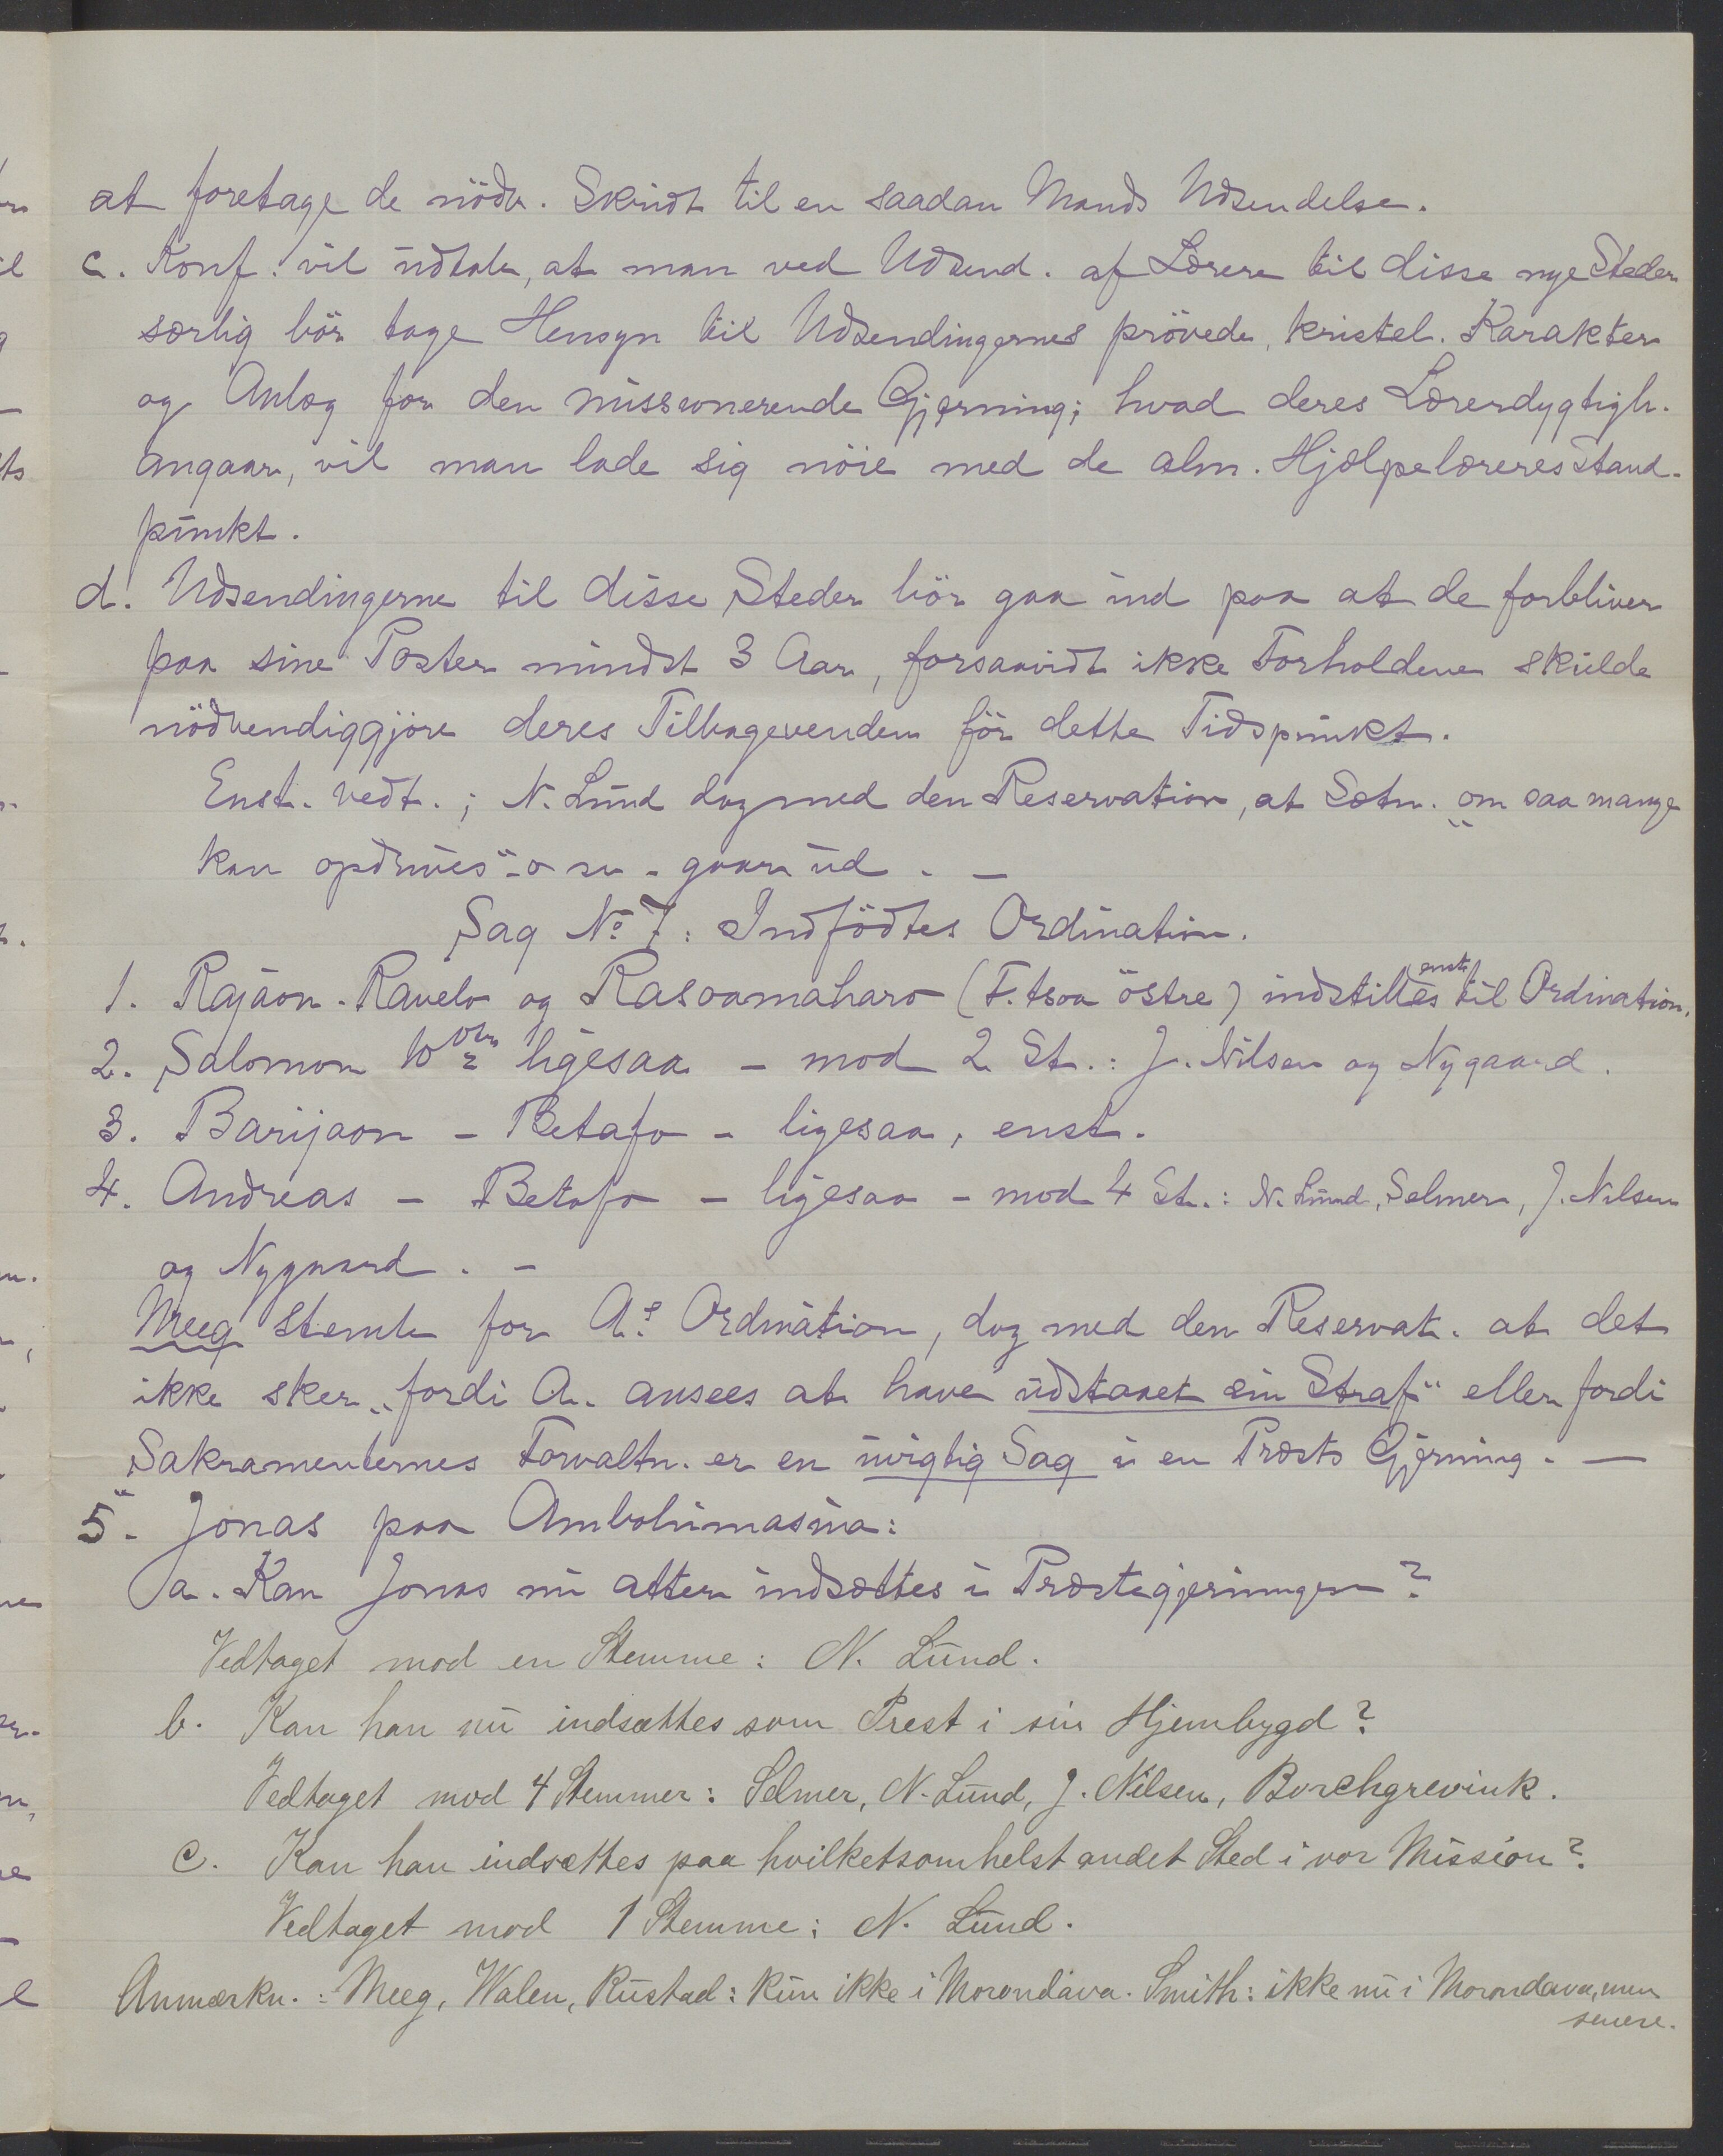 at foretage de nödv. Skridt til en saadan Mands Udsendelse.
c. Konf. vil udtale, at man ved Udsend. af Lærere til disse nye Steder
særlig bör tage Hensyn til Udsendingernes prövede, kristel. Karakter
og Anlæg for den missionerende Gjerning; hvad deres Lærerdygtigh.
angaar, vil man lade sig nöie med de alm. Hjælpelæreres Stand-
punkt.
d. Udsendingerne til disse Steder bör gaa ind paa at de forbliver
paa sine Poster mindst 3 Aar, forsaavidt ikke Forholdene skulde
nödvendiggjöre deres Tilbagevenden för dette Tidspunkt.
Enst. vedt.; N. Lund dog med den Reservation, at Sætn. "om saa mange
kan opdrives" o sv. gaar ud. —
Sag No 7: Indfödtes Ordination.
1. Rajaon. Ravelo og Rasoamaharo (F.tsoa östre) indstilles enst. til Ordination.
2. Salomon ligesaa - mod 2 St.: J. Nilsen og Nygaard.
3. Barijaon - Betafo - ligesaa, enst.
4. Andreas - Betafo - ligesaa - mod 4 St.: N. Lund, Selmer, J. Nilsen
og Nygaard. -
Meeg stemte for A.s Ordination, dog med den Reservat. at det
ikke sker "fordi A. ansees at have udstaaet sin Straf" eller fordi
Sakramenternes Forvaltn. er en uvigtig Sag i en Præsts Gjerning. —
5. Jonas paa Ambohimasina:
a. Kan Jonas nu atter indsættes i Præstegjerningen?
Vedtaget mod en Stemme: N. Lund.
b. Kan han nu indsættes som Prest i sin Hjembygd?
Vedtaget mod 4 Stemmer: Selmer, N. Lund, J. Nilsen, Borchgrevink.
c. Kan han indsættes paa hvilketsomhelst andet Sted i vor Mission?
Vedtaget mod 1 Stemme: N. Lund.
Anmærkn.: Meeg, Walen, Rustad: kun ikke i Morondava. Smith: ikke nu i Morondava, men
senere.